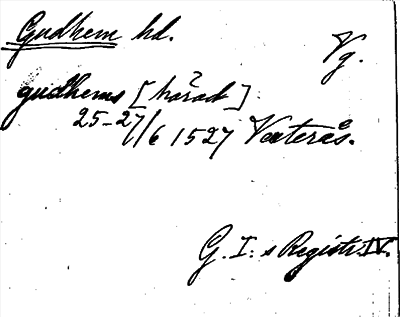 Gudhem hd.
Vg.
gudhems [härad]
25-27/6 1527 Västerås.
G. I: s Registr. IV.